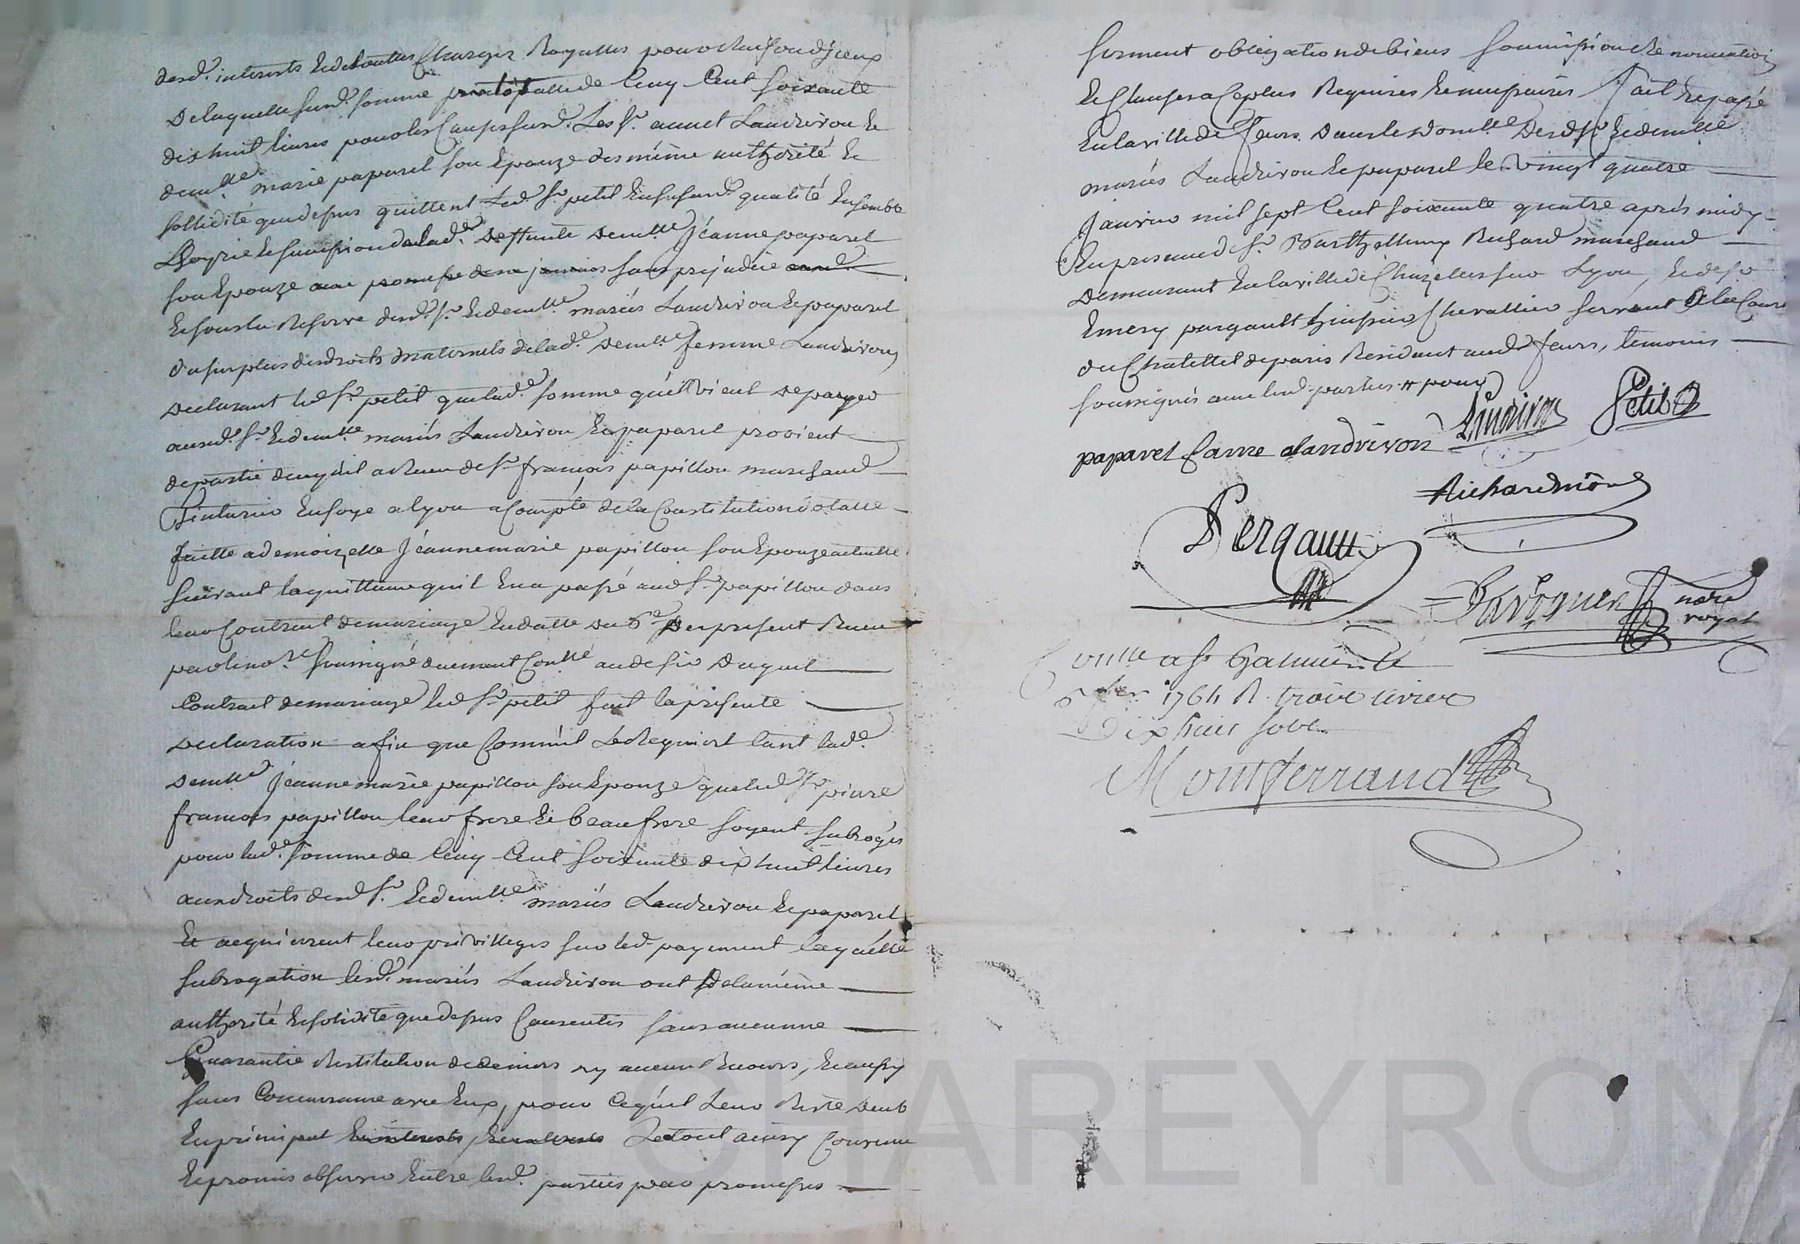 desd. interests et de touttes charges Royalles pour raison d'jceux
De laquelle susd. somme principalle de Cinq Cent soixante
dix huit livres pour les Causes susd. Les sr. annet Landrivon et
demlle. marie paparel son Epouze des même authorité et
sollidité que depuis quittent led sr. petit En susd. qualité Ensemble
L'hoyrie et succession de lad. deffunte demlle Jeanne paparel
son Epouze avec promesse sans prejudice
Et sous la Reserve desd. sr. et demlle. mariés Landrivon et paparel
du surplus des droits maternels de lad. demlle femme Landrivon
Declarant led sr. petit que lad. somme qu'il vient de payer
auxd. sr. et demlle. mariés Landrivon et paparel provient
de partie de ce qu'il a Receu de sr. françois papillon marchand
Teinturier En soye a lyon a Compte de la Constitution dotalle
faitte a demoizelle Jeanne marie papillon son Epouze actuelle
suivant la quittance qu'il En a passé aud sr. papillon dans
leur Contrant de mariage En datte du 6e du present Receu
par le nore soussigné duement Conllé au desir Duquel
Contrant de mariage led sr. petit fait la presente
Declaration afin que Comme il Le Requiert tant lad.
Demlle Jeanne marie papillon son Epouze que led sr. pierre
françois papillon leur frere et beau frere soyent subrogés
pour lad. somme de Cinq Cent soixante dix huit livres
aux droits desd sr. et demlle. mariés Landrivon et paparel
Et acquierrent leur privilleges sur led. payement laquelle
subrogation lesd. mariés Landrivon ont De la même
authorité et solidité que depuis Consentis sans aucunne
Guarantie Restitution de deniers ny aucun Recours, Et aussy
sans Concurrance avec Eux, pour Ce qu'il Leur Reste deub
En principal et interests, Le tout ainsy Convenu
Et promis observer Entre lesd. parties par promesses
serment obligation de biens soumission Renonciation
Et Clauses a Ce plus Requises et necessaires fait et passé
En la ville de feurs Dans le domlle Desd sr. et demlle
mariés Landrivon et paparel le vingt quatre
Janvier mil sept Cent soixante quatre après midy
En presence de sr. Barthellemy Richard marchand
Demeurant En la ville de Chazelles sur Lyon, et de sr
Emery pargault huissier Chevallier servant De la Cour
du Chatellet de paris Residant aud feurs, temoins
soussignés avec lesd. parties
paparel fame alandrivon Landrivon Petit
Richard
Pergault
nore
royal
Conllé a st Galmier le
1764 R. trois livres
dix huit sols
Montferrand
CHAREYRON